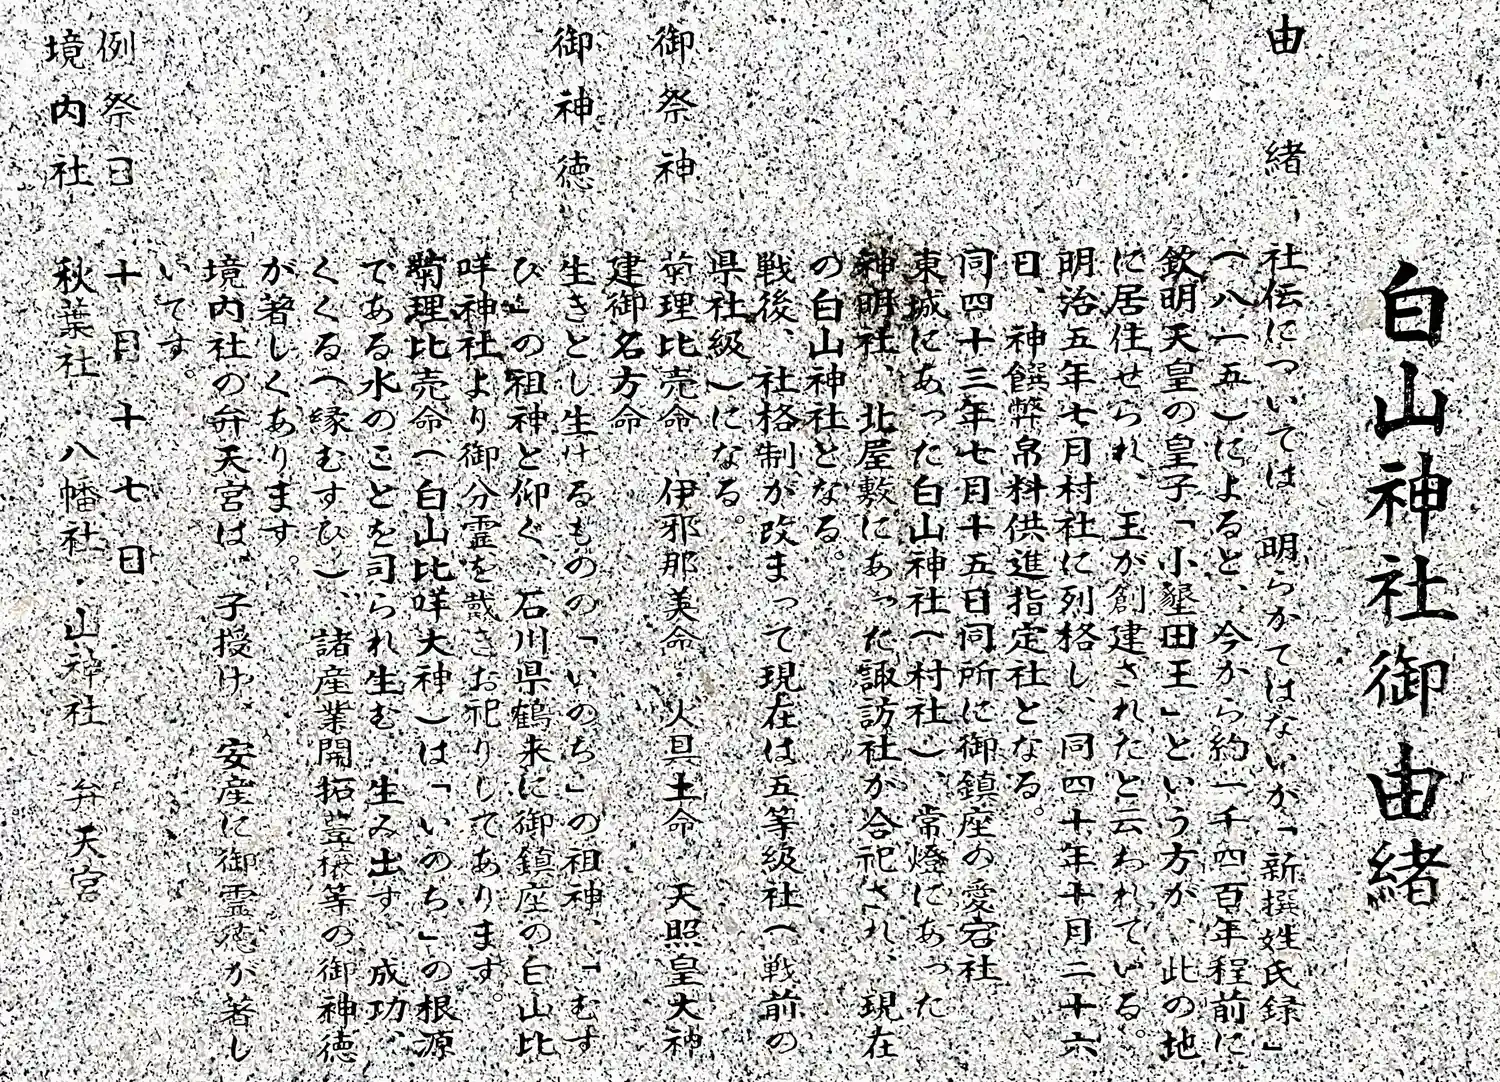 白山神社御由緒
由緒 社伝については、明らかてはないが「新撰姓氏録」
(八一五)によると、今から約一千四百年程前に
欽明天皇の皇子「小墾田王」という方が、此の地
に居住せられ、王が創建されたと云われている。
明治五年七月村社に列格し、同四十年十月二十六
日、神饌弊帛料供進指定社となる。
同四十三年七月十五日同所に御鎮座の愛宕社
東城にあった白山神社(村社)、常燈にあった
神明社、北屋敷にあった諏訪社が合祀され、現在
の白山神社となる。
戦後、社格制が改まって現在は五等級社(戦前の
県社級)になる。
御祭神 菊理比売命・伊邪那美命・火具土命・天照皇大神
建御名方命
御神徳 生きとし生けるものの「いのち」の祖神、「むす
び」の祖神と仰ぐ、石川県鶴来に御鎮座の白山比
咩神社より御分霊を戴きお祀りしてあります。
菊理比売命(白山比咩大神)は「いのち」の根源
である水のことを司られ生む、生み出す、成功、
くくる(縁むすび)、諸産業開拓等の御神徳
が著しくあります。
境内社の弁天宮は、子授け、安産に御霊徳が著し
いです。
例祭日 十月十七日
境内社 秋葉社・八幡社・山神社・弁天宮